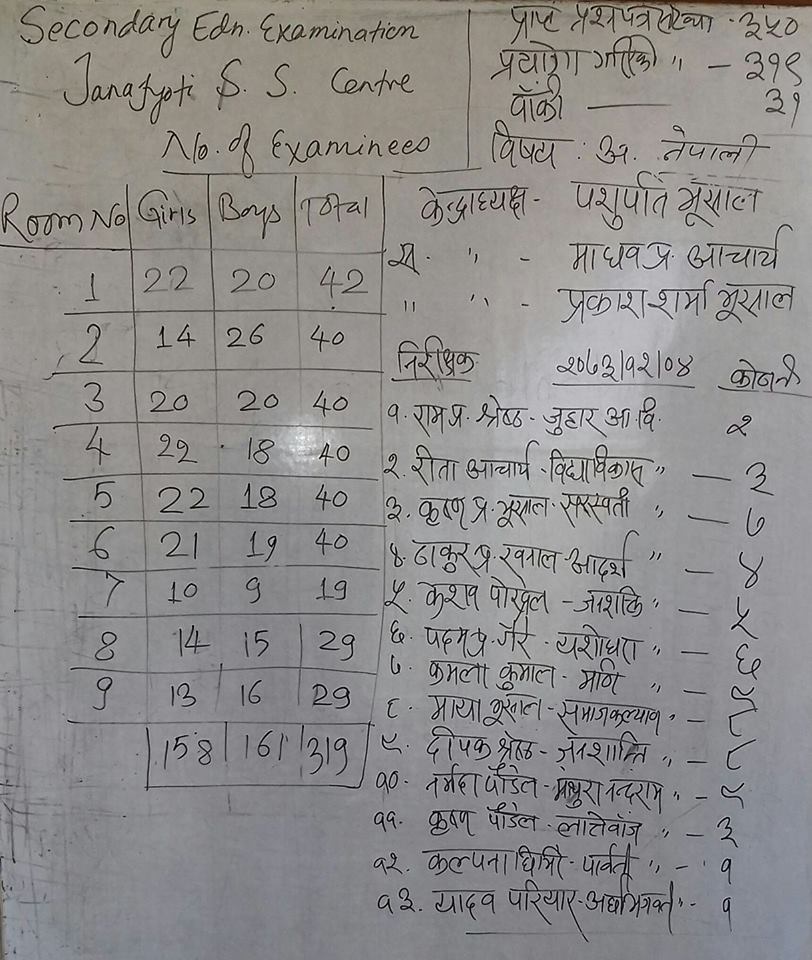 Secondary Edn. Examination
Janajyoti S. S. Centre
No. of Examinees
प्राप्त प्रश्नपत्र संख्या - ३५०
प्रयोग गरिएको " - ३१९
बाँकी ३१
विषय : अ. नेपाली
Room No Girls Boys Total
1 22 20 42
2 14 26 40
3 20 20 40
4 22 18 40
5 22 18 40
6 21 19 40
7 10 9 19
8 14 15 29
9 13 16 29
158 161 319
केन्द्राध्यक्ष - पशुपति भूसाल
स. " - माधव प्र. आचार्य
" " - प्रकाश शर्मा भूसाल
निरीक्षक २०७३/१२/०४ को.नं
१. राम प्र. श्रेष्ठ - जुहार आ.वि. २
२. रीता आचार्य - विद्याविकास " - ३
३. कृष्ण प्र. भूसाल - सरस्वती " - ७
४. ठाकुर प्र. खनाल - आदर्श " - ४
५. केशव पोखेल - जनशक्ति " - ५
६. पदम प्र. गैरे - यशोधरा " - ६
७. कमला कुमाल - मणि " - ९
८. माया भूसाल - समाजकल्याण " - ८
९. दीपक श्रेष्ठ - जनशान्ति " - ८
१०. नर्मदा पौडेल - " - ९
११. कृष्ण पौडेल - " - ३
१२. कल्पना घिमिरे - पार्वती " - १
१३. यादव परियार - " - १